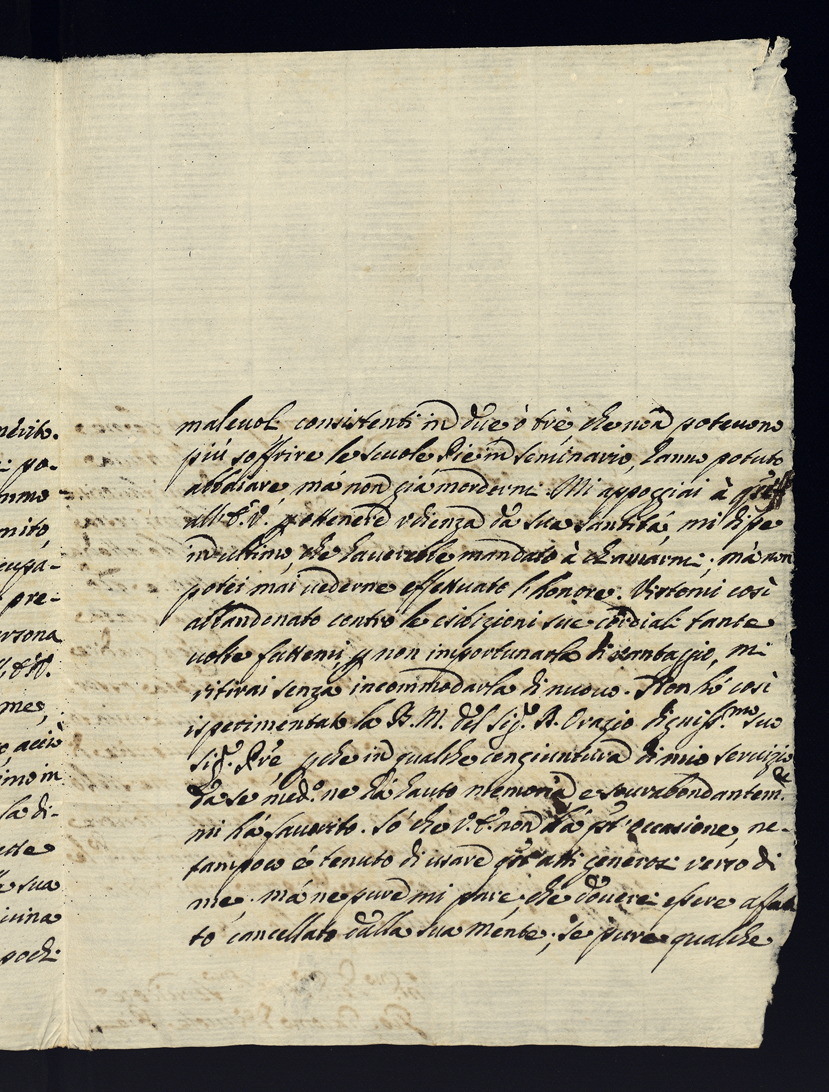 nérito.
po-
mmo
mito
cupa-
pre-
ersona
me,
acciò
simo in
la di-
sua
ivina
pochi
malevoli consistenti in due ò trè che non potevono
più soffrire le scuole Pie in seminario, hanno potuto
abbaiare, mà non già mordermi. Mi appoggiai à
all'E.V. p ottenere vdienza da sua Santità, mi disse
in ultimo, che haverebbe mandato à chiamarmi; mà non
potei mai vederne effettuato l'honore. Vistomi così
abbandonato contro le esibizioni sue cordiali tante
volte fattemi, p non importunarla di vantaggio, mi
ritirai senza incommodarla di nuovo. Non hò così
isperimentato la B. M. del Sig.r D. Orazio digniss.mo suo
Sig.r Pre p che in qualche congiuntura di mio servizio
da se med.o ne hà hauto memoria e sovrabondantem.te
mi hà favorito. Sò che V.E. non hà pñt' occasione, ne-
tampoco è tenuto di usare q'sti atti generosi verso di
me. mà ne pure mi pare che doverei essere affat
tò cancellato dalla sua mente; se pure qualche